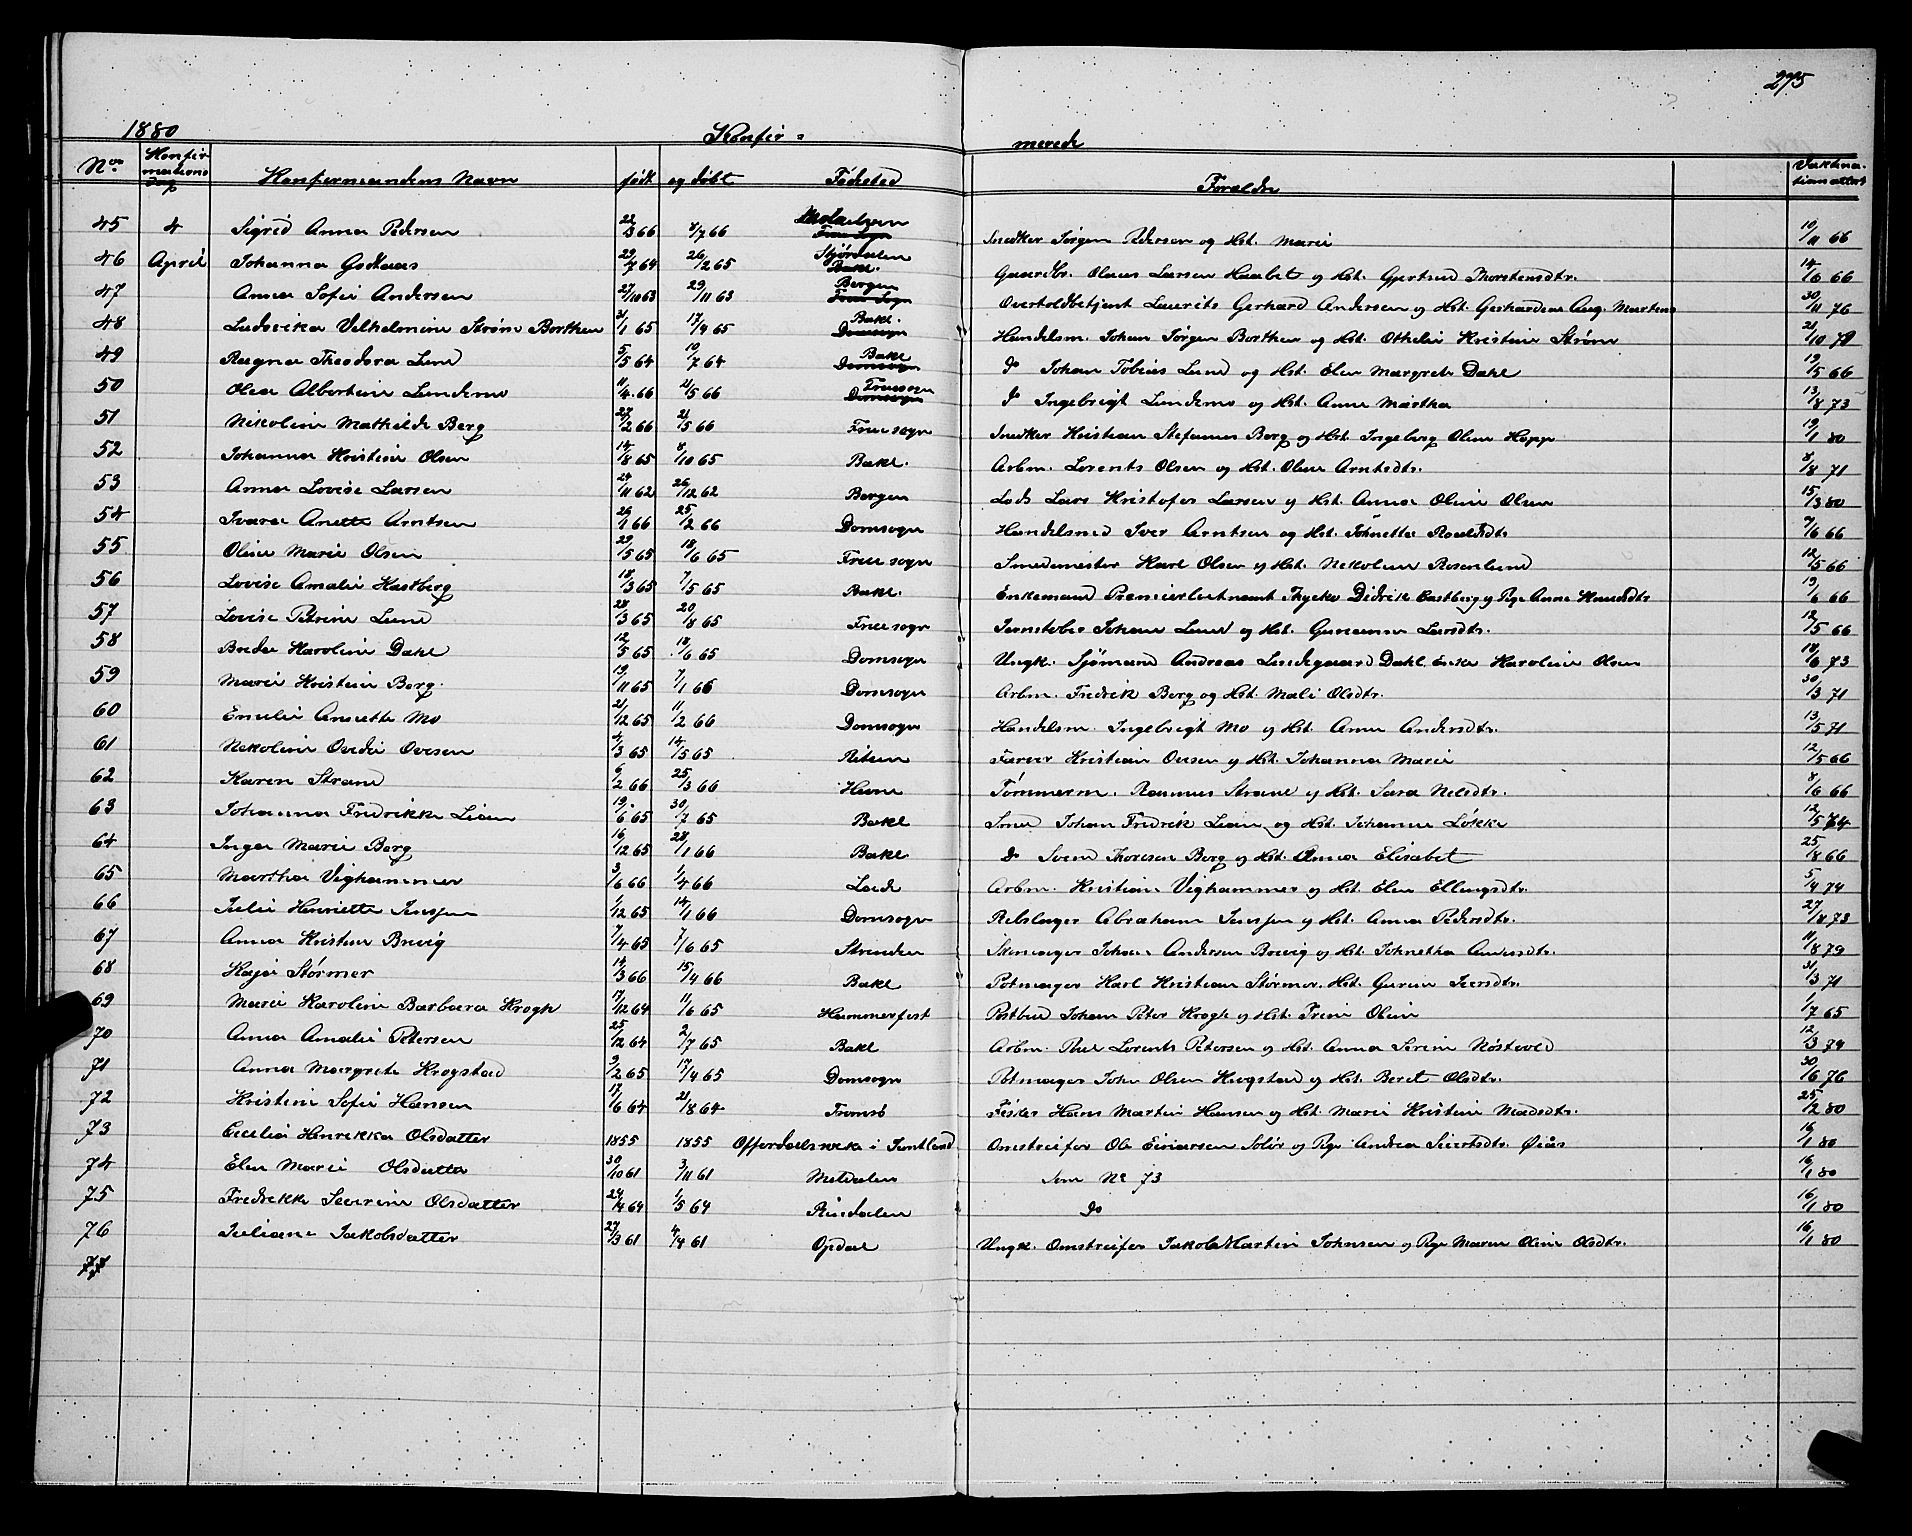 275
1880 Konfir= merede
No. Konfirmations dag Konfirmandens Navn født og døbt Fødested Forældre Vaktinationsattest
45 4 Sigrid Anna Pedersen 22/3 66 4/7 66 Snedker Jørgen Pedersen og Hst. Marie 10/11 66
46 April Johanna 29/7 64 26/2 65 Stjørdalen Bakl. Gaardbr. Olaus Larsen og Hst. Gjertrud Thorstensdtr. 14/6 66
47 Anna Sofie Andersen 27/10 63 29/11 63 Bergen Overtoldbetjent Laurits Gerhard Andersen og Hst. Gerhardine Aug. Martens 30/11 76
48 Ludovika Vilhelmine Strøm Borthen 31/1 65 17/4 65 Bakl. Domsogn Handelsm. Johan Jørgen Borthen og Hst. Othelie Kristine Strøm 21/10 78
49 Ragna Theodora Lund 5/5 64 10/7 64 Bakl Domsogn Do Johan Tobias Lund og Hst. Elen Margrete Dahl 19/5 66
50 Olea Albertine Lundemo 11/4 66 21/5 66 Fruesogn Domsogn Do Ingebrigt Lundemo og Hst. Anne Martha 13/8 73
51 Nikoline Mathilde Berg 27/2 66 21/5 66 Fruesogn Snedker Kristian Stefanus Berg og Hst. Ingeborg Oline Hopp 19/1 80
52 Johanna Kristine Olsen 14/8 65 8/10 65 Bakl. Arbm. Lorents Olsen og Hst. Oline Arntsdtr. 8/8 71
53 Anna Lovise Larsen 24/11 62 26/12 62 Bergen Lods Lars Kristofer Larsen og Hst. Anna Oline Olsen 15/3 80
54 Ivara Anette Arntsen 26/1 66 25/2 66 Domsogn Handelsmd Iver Arntsen og Hst. Johnette Roaldsdtr. 9/6 66
55 Oline Marie Olsen 29/5 65 18/6 65 Fruesogn Smedmester Karl Olsen og Hst. Nikoline Rosenlund 12/5 66
56 Lovise Amalie Kastberg 18/3 65 7/5 65 Bakl. Enkemand Premierlieutnant Thycho Didrik Castberg og Pge Anne Knudsdtr 19/6 66
57 Lovise Petrine Lund 28/3 65 20/8 65 Fruesogn Jernstøber Johan Lund og Hst. Larsdtr. 12/5 66
58 Karoline Dahl 12/5 65 18/6 65 Domsogn Ungk. Sjømand Andreas Lundegaard Dahl Enke Karoline Olsen 18/6 73
59 Marie Kristine Berg. 19/11 65 7/1 66 Domsogn Arbm. Fredrik Berg og Hst. Mali Olsdtr. 30/3 71
60 Emilie Anette Mo 21/12 65 11/2 66 Domsogn Handelsm. Ingebrigt Mo og Hst. Anne Andersdtr. 13/5 71
61 Nikoline Ovedie Ovesen 4/3 65 14/5 65 Ritsen Farver Kristian Ovesen og Hst. Johanna Marie 12/5 66
62 Karen Strand 6/2 66 25/3 66 Hevne Tømmerm. Rasmus Strand og Hst. Sara Nilsdtr. 8/6 66
63 Johanna Fredrikke Lian 19/6 65 30/7 65 Bakl Smed Johan Fredrik Lian og Hst. Johanna Løkke 12/5 74
64 Inga Marie Berg 16/12 65 28/1 66 Bakl Do Svend Thoresen Berg og Hst. Anna Elisabet 25/8 66
65 Martha Vighammer 3/6 66 1/4 66 Lade Arbm. Kristian Vighammer og Hst. Elen Ellingsdtr. 5/4 74
66 Julie Henriette Jenssen 1/12 65 14/1 66 Domsogn Rebslager Abraham Jenssen og Hst. Anna Pedersdtr. 27/11 73
67 Anna Kristine Brevig 7/4 65 7/6 65 Strinden Skomager Johan Andersen Brevig og Hst. Johnetha 11/8 79
68 Kaja Størmer 14/3 66 15/4 66 Bakl Potmager Karl Kristian Størmer. Hst. Iversdtr. 31/3 71
69 Marie Karoline Barbara Krogh 17/12 64 11/6 65 Hammerfest Postbud Johan Peter Krogh og Hst. Oline 1/7 65
70 Anna Amalie Petersen 25/12 64 2/7 65 Bakl Arbm. Lorents Petersen og Hst. Anna Serine Nøstvold 12/3 74
71 Anna Margrete Krogstad 9/2 65 17/4 65 Domsogn Potmager John Olsen Krogstad og Hst. Beret Olsdtr. 30/6 76
72 Kristine Sofie Hansen 17/6 64 21/8 64 Tromsø Fisker Hans Martin Hansen og Hst. Marie Kristine Madsdtr. 25/2 80
73 Cecilia Henrikka Olsdatter 1855 1855 Offerdalsvek i Jemtland Omstreifer Ole Einarsen Solør og Pge Andrea Siertsdtr. Øiås 16/1 80
74 Elen Marie Olsdatter 30/10 61 3/11 61 Meldalen Som No 73 16/1 80
75 Fredrikke Severine Olsdatter 24/4 64 1/5 64 Rindalen Do 16/1 80
76 Juliane Jakobsdatter 27/3 61 4/4 61 Opdal Ungk. Omstreifer Jakob Martin Johnsen og Pge Maren Oline Olsdtr. 16/1 80
77